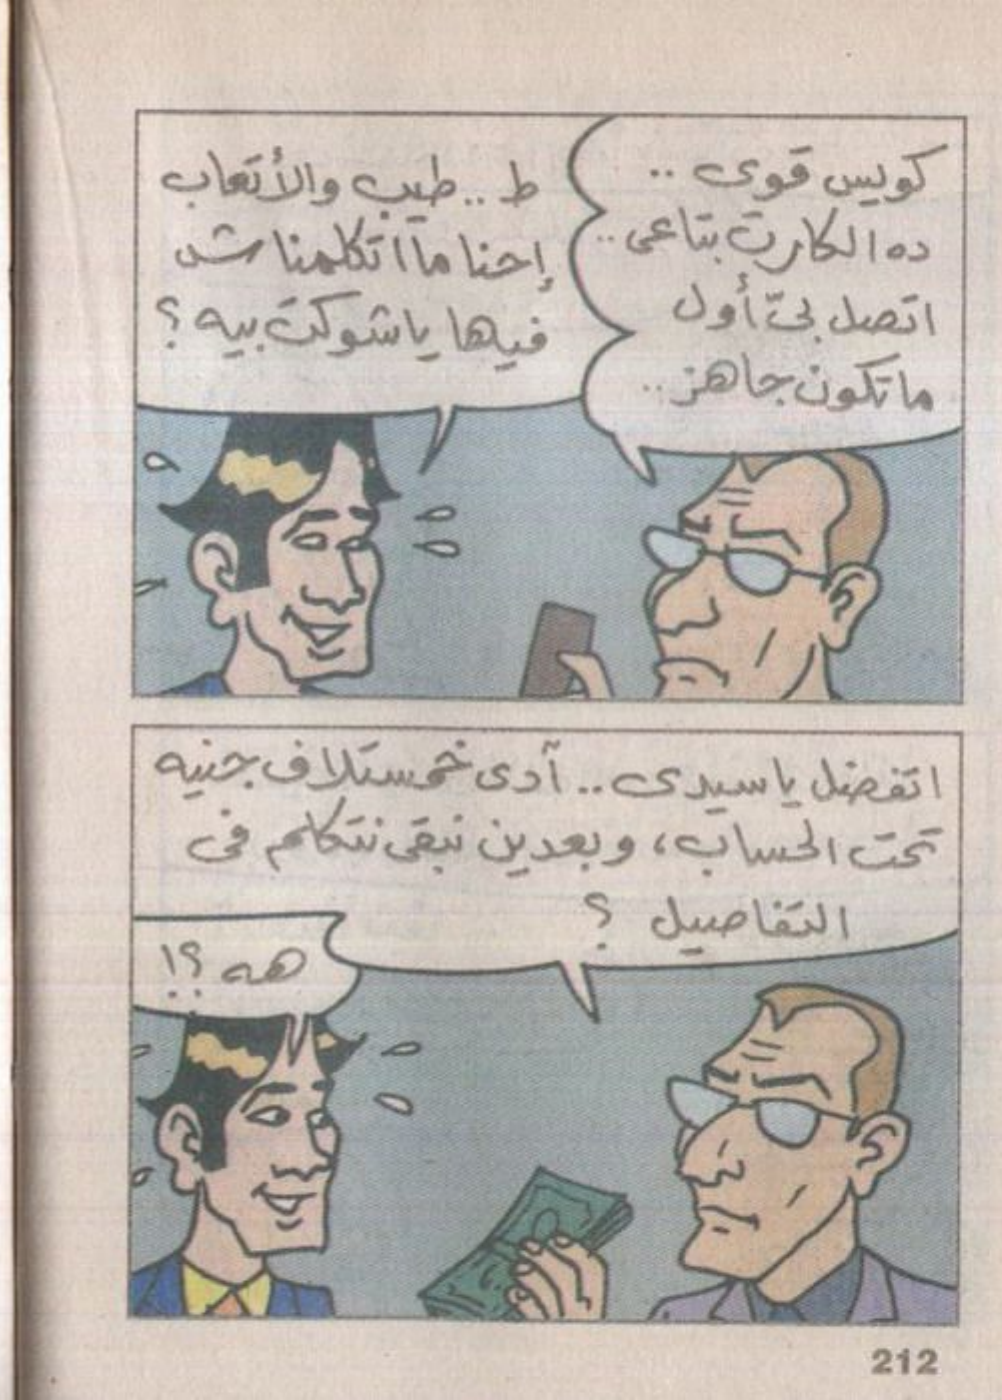 كويس قوى ..
ده الكارت بتاعى ..
اتصل بىّ أول
ما تكون جاهز ..
ط .. طيب والأتعاب
إحنا ما اتكلمناش
فيها يا شوكت بيه ؟
اتفضل يا سيدى .. آدى خمستلاف جنيه
تحت الحساب، وبعدين نبقى نتكلم فى
التفاصيل ؟
هه ؟!
212